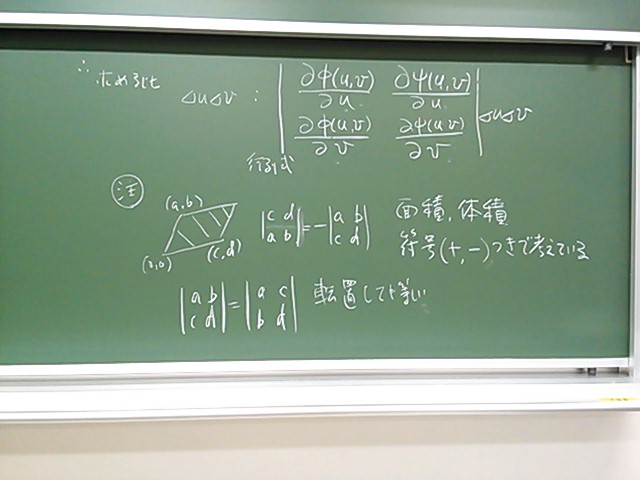 ∴ 求める比
△u△v : | ∂φ(u,v)/∂u ∂ψ(u,v)/∂u |
| ∂φ(u,v)/∂v ∂ψ(u,v)/∂v | △u△v
行列式
注
(a,b)
(0,0) (c,d)
|c d| = -|a b|
|a b| |c d|
面積,体積
符号(+,-)つきで考えている
|a b| = |a c| 転置しても等しい
|c d| |b d|